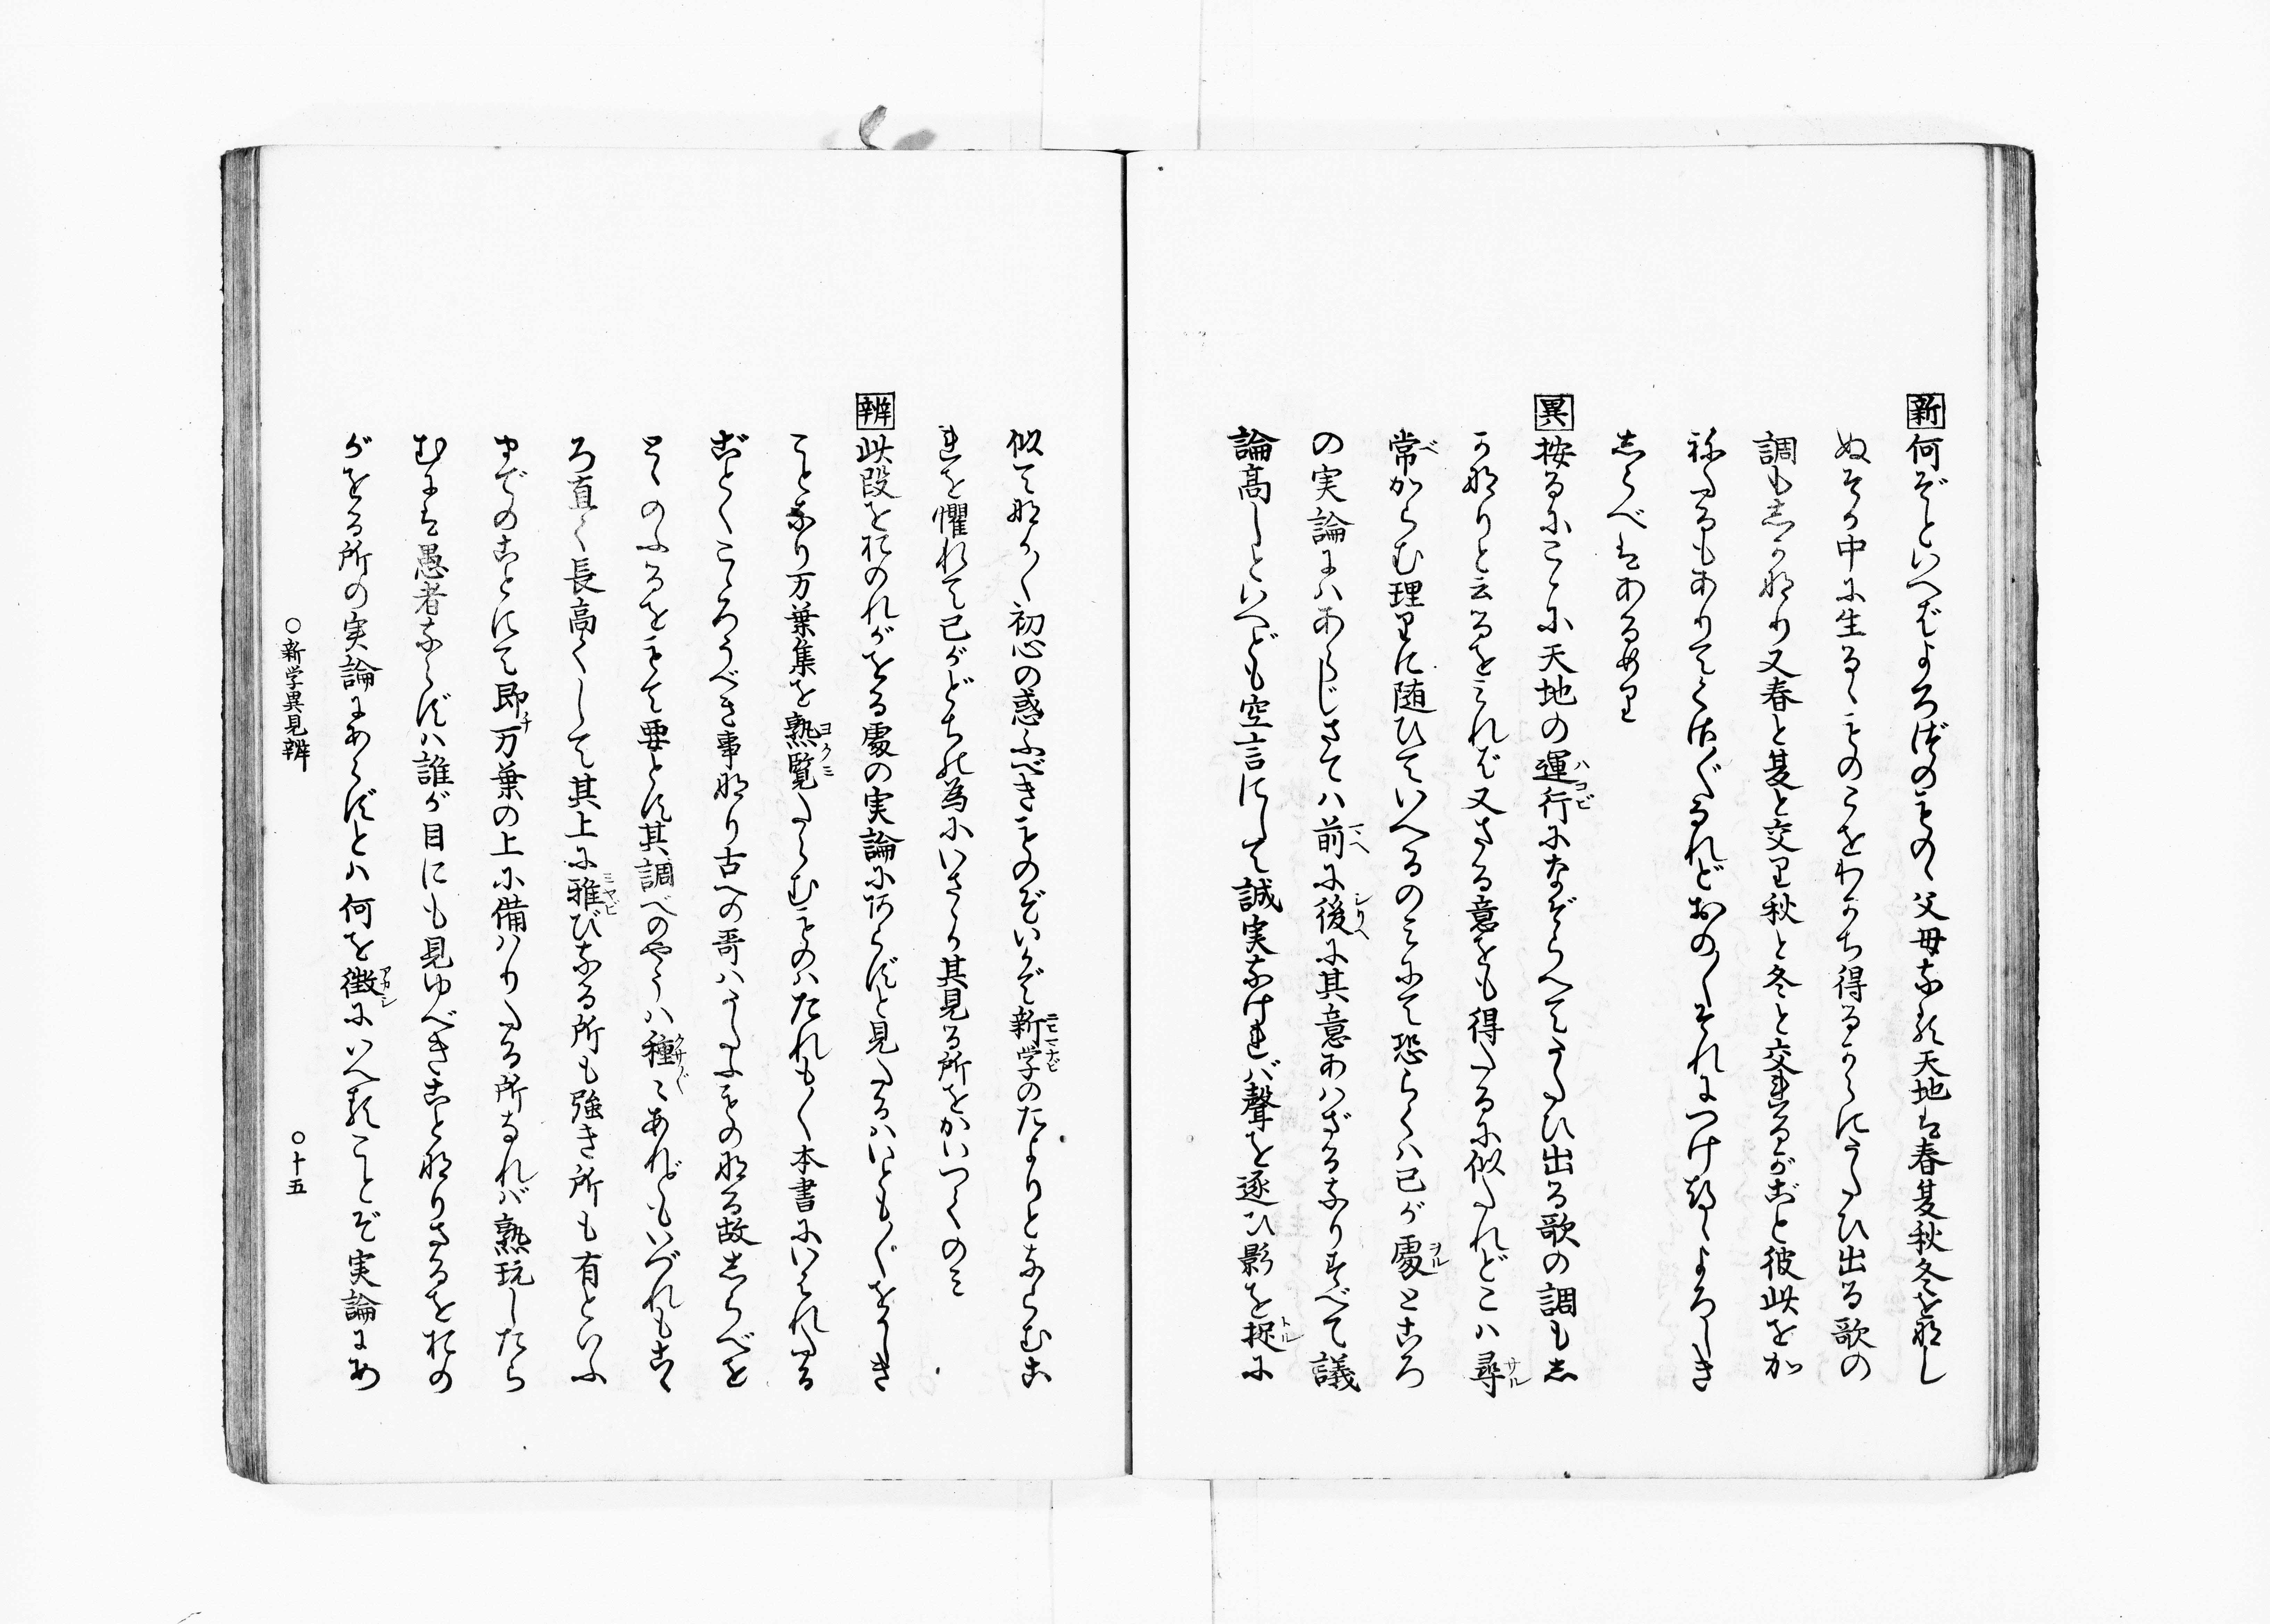 新何ぞといへばよろづのものゝ父母なる天地は春夏秋冬をなし
ぬそが中に生るゝものこをわかち得るからにうたひ出る歌の
調もしかなり又春と夏と交り秋と冬と交れるがごと彼此をか
ねたるもありてくさ〴〵なれどおの〳〵それにつけつゝよろしき
しらべはあるめり
異按るにこゝに天地の運行になぞらへてうたひ出る歌の調もし
かなりと云るをみれば又さる意をも得たるに似たれどこハ尋
常からむ理りに随ひていへるのみにて恐らくハ己が處ところ
の実論にハあらじさてハ前に後に其意あハざるなりすべて議
論高しといへども空言にして誠実なければ聲を逐ひ影を捉に
似てなか〳〵初心の惑ふべきものぞいかで新学のたよりとならむこ
れを懼れて己がどちの為にいさゝか其見る所をかいつくのミ
辨此段をおのれがをる處の実論にあらずと見たるハいとも〳〵をかしき
ことなり万葉集を熟覧たらむものハたれも〳〵本書にいはれたる
ごとくこゝろうべき事なり古への哥ハうたふものなる故しらべを
とゝのふるをもて要とす其調べのやうハ種〻あれどもいづれもこゝ
ろ直く長高くして其上に雅びなる所も強き所も有といふ
までのことにて即万葉の上に備ハりたる所なれバ熟玩したら
むには愚者ならずハ誰が目にも見ゆべきことなりさるをおの
がをる所の実論にあらずとハ何を徴にいへることぞ実論にあ
○新学異見辨　○十五